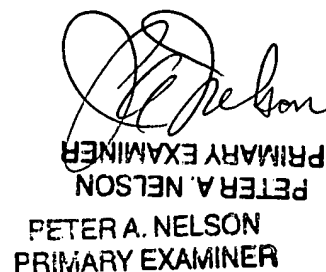 P. A. Nelson
PRIMARY EXAMINER
PETER A. NELSON
PETER A. NELSON
PRIMARY EXAMINER